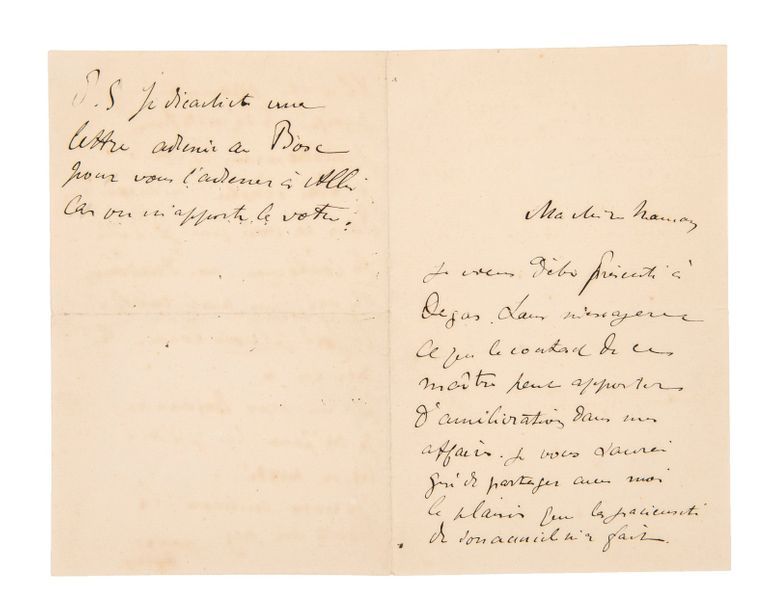 Ma chère Maman
Je viens d'être présenté à
Degas. Sans m'exagérer
ce que le contact de ce
maître peut apporter
d'amélioration dans mes
affaires. Je vous saurai
gré de partager avec moi
le plaisir que la gracieuseté
de son accueil m'a fait.
P.S Je décachète une
lettre adressée au Bosc
pour vous l'adresser à Albi
car on m'apporte la votre.